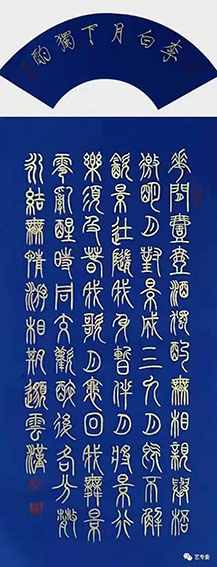 李白月下獨酌
華間壹壺酒獨酌無相親舉桮
邀明月對景成三人月既不解
飲景徒隨我身暫伴月將景行
樂須及春我歌月裵回我舞景
零亂醒時同交歡醉後各分散
永結無情游相期邈雲漢
艺专委